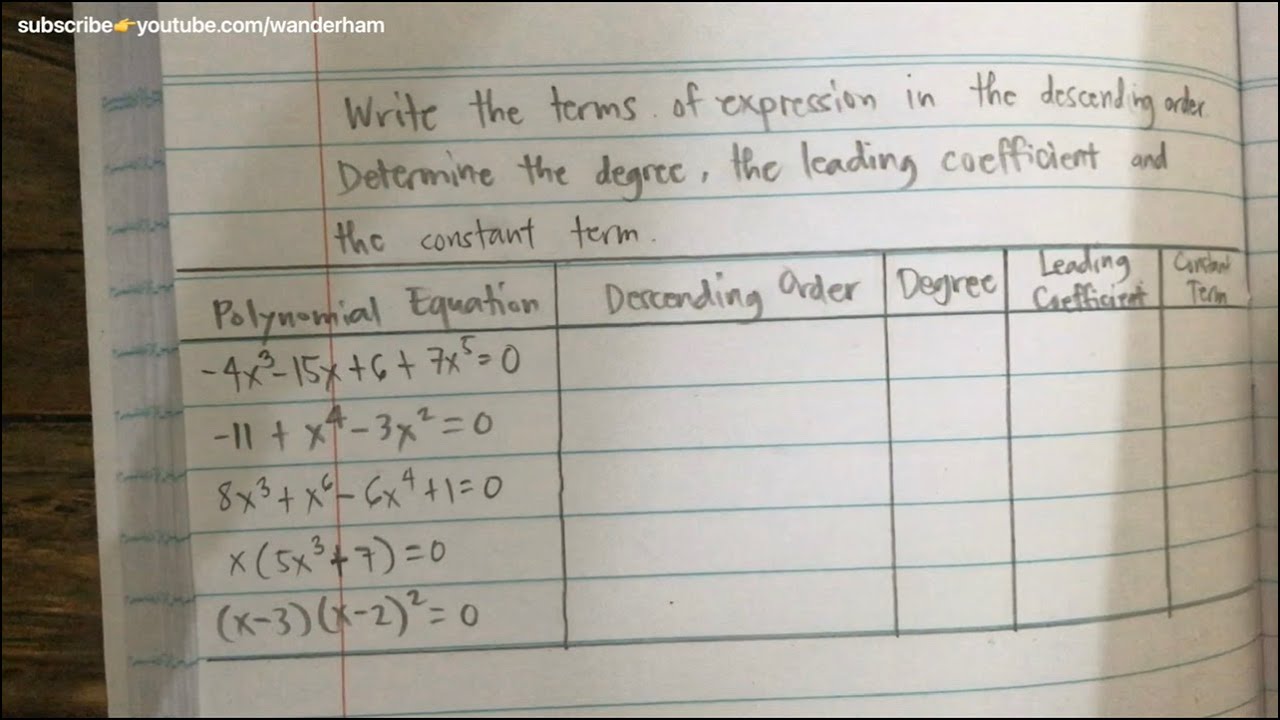 subscribe👉youtube.com/wanderham
Write the terms of expression in the descending order.
Determine the degree, the leading coefficient and
the constant term.
Polynomial Equation Descending Order Degree Leading Coefficient Constant Term
-4x³-15x+6+7x⁵=0
-11+x⁴-3x²=0
8x³+x⁶-6x⁴+1=0
x(5x³+7)=0
(x-3)(x-2)²=0